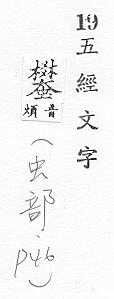 19五經文字
蠜
音煩
(虫部.p46)